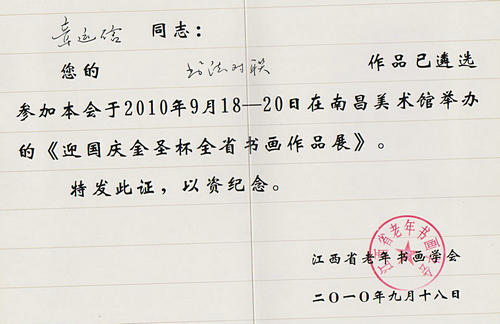 同志：
您的 书法对联 作品已遴选
参加本会于2010年9月18—20日在南昌美术馆举办
的《迎国庆金圣杯全省书画作品展》。
特发此证，以资纪念。
江西省老年书画学会
江西省老年书画学会
二〇一〇年九月十八日